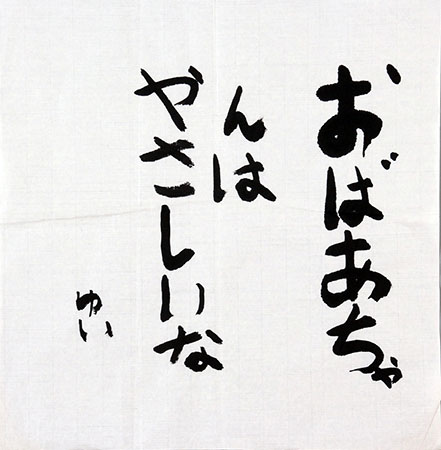 おばあちゃ
んは
やさしいな
ゆい